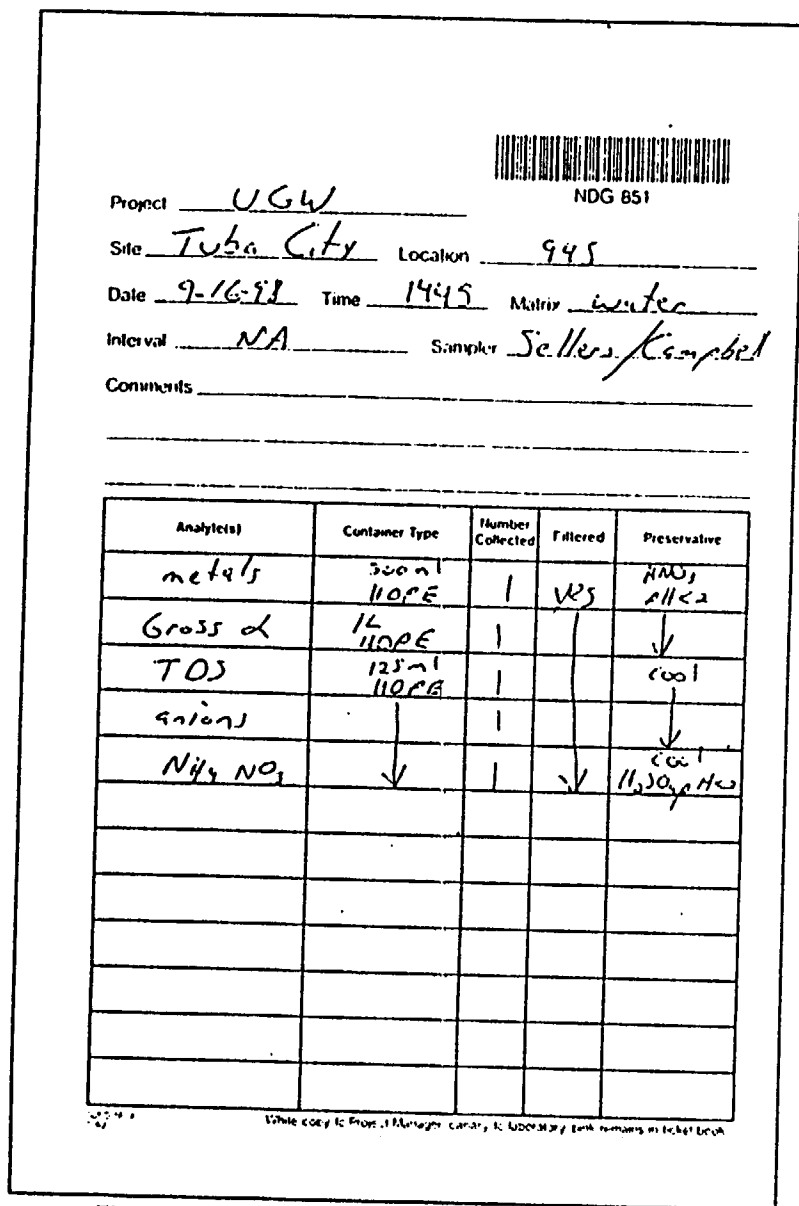 NDG 851
Project UGW
Site Tuba City Location 945
Date 9-16-98 Time 1445 Matrix water
Interval NA Sampler Sellers/Campbell
Comments
Analyte(s) Container Type Number Collected Filtered Preservative
metals 500 ml HDPE 1 yes HNO3 pH<2
Gross α 1L HDPE 1
TDS 125ml HDPE 1 cool
anions 1
NH4 NO3 1 cool H2SO4 pH<2
White copy to Project Manager, canary to laboratory, pink remains in ticket book